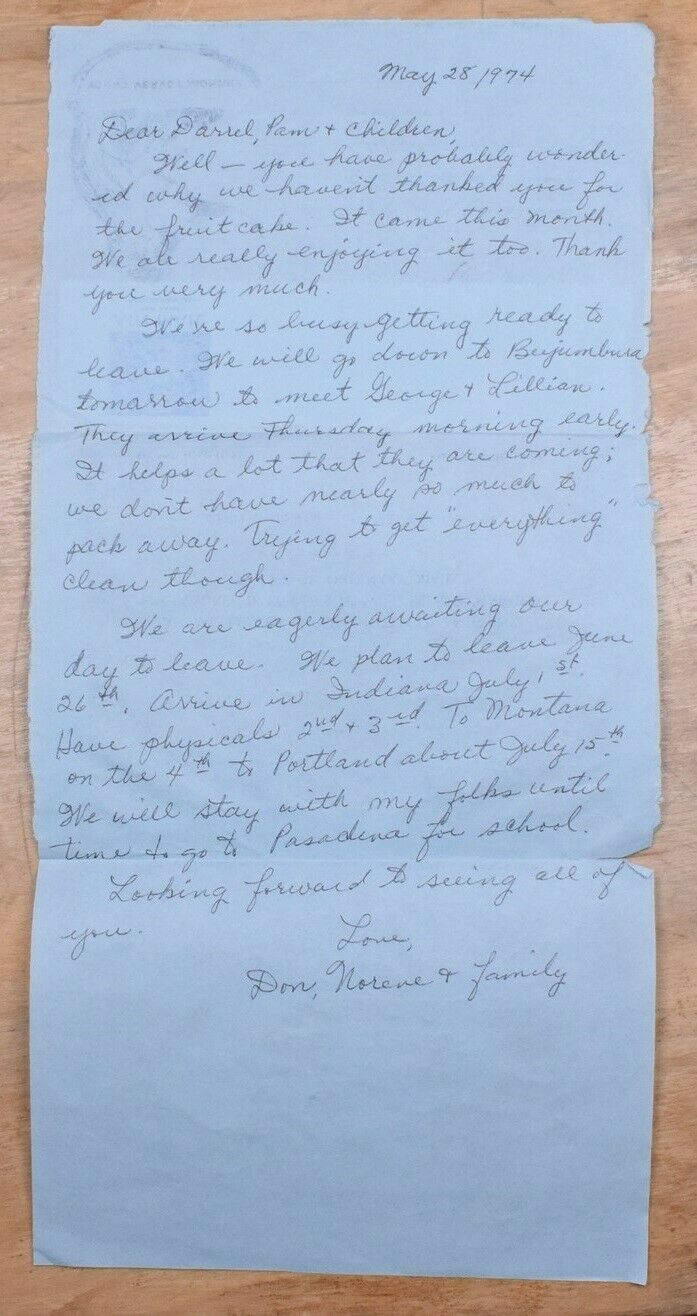 May 28, 1974
Dear Darrel, Pam + Children,
Well — you have probably wonder-
ed why we haven't thanked you for
the fruit cake. It came this month.
We are really enjoying it too. Thank
you very much.
We're so busy getting ready to
leave. We will go down to Bujumbura
tomarrow to meet George + Lillian.
They arrive Thursday morning early.
It helps a lot that they are coming;
we don't have nearly so much to
pack away. Trying to get "everything"
clean though.
We are eagerly awaiting our
day to leave. We plan to leave June
26th. Arrive in Indiana July 1st.
Have physicals 2nd + 3rd. To Montana
on the 4th to Portland about July 15th.
We will stay with my folks until
time to go to Pasadina for school.
Looking forward to seeing all of
you.
Love,
Don, Norene + family